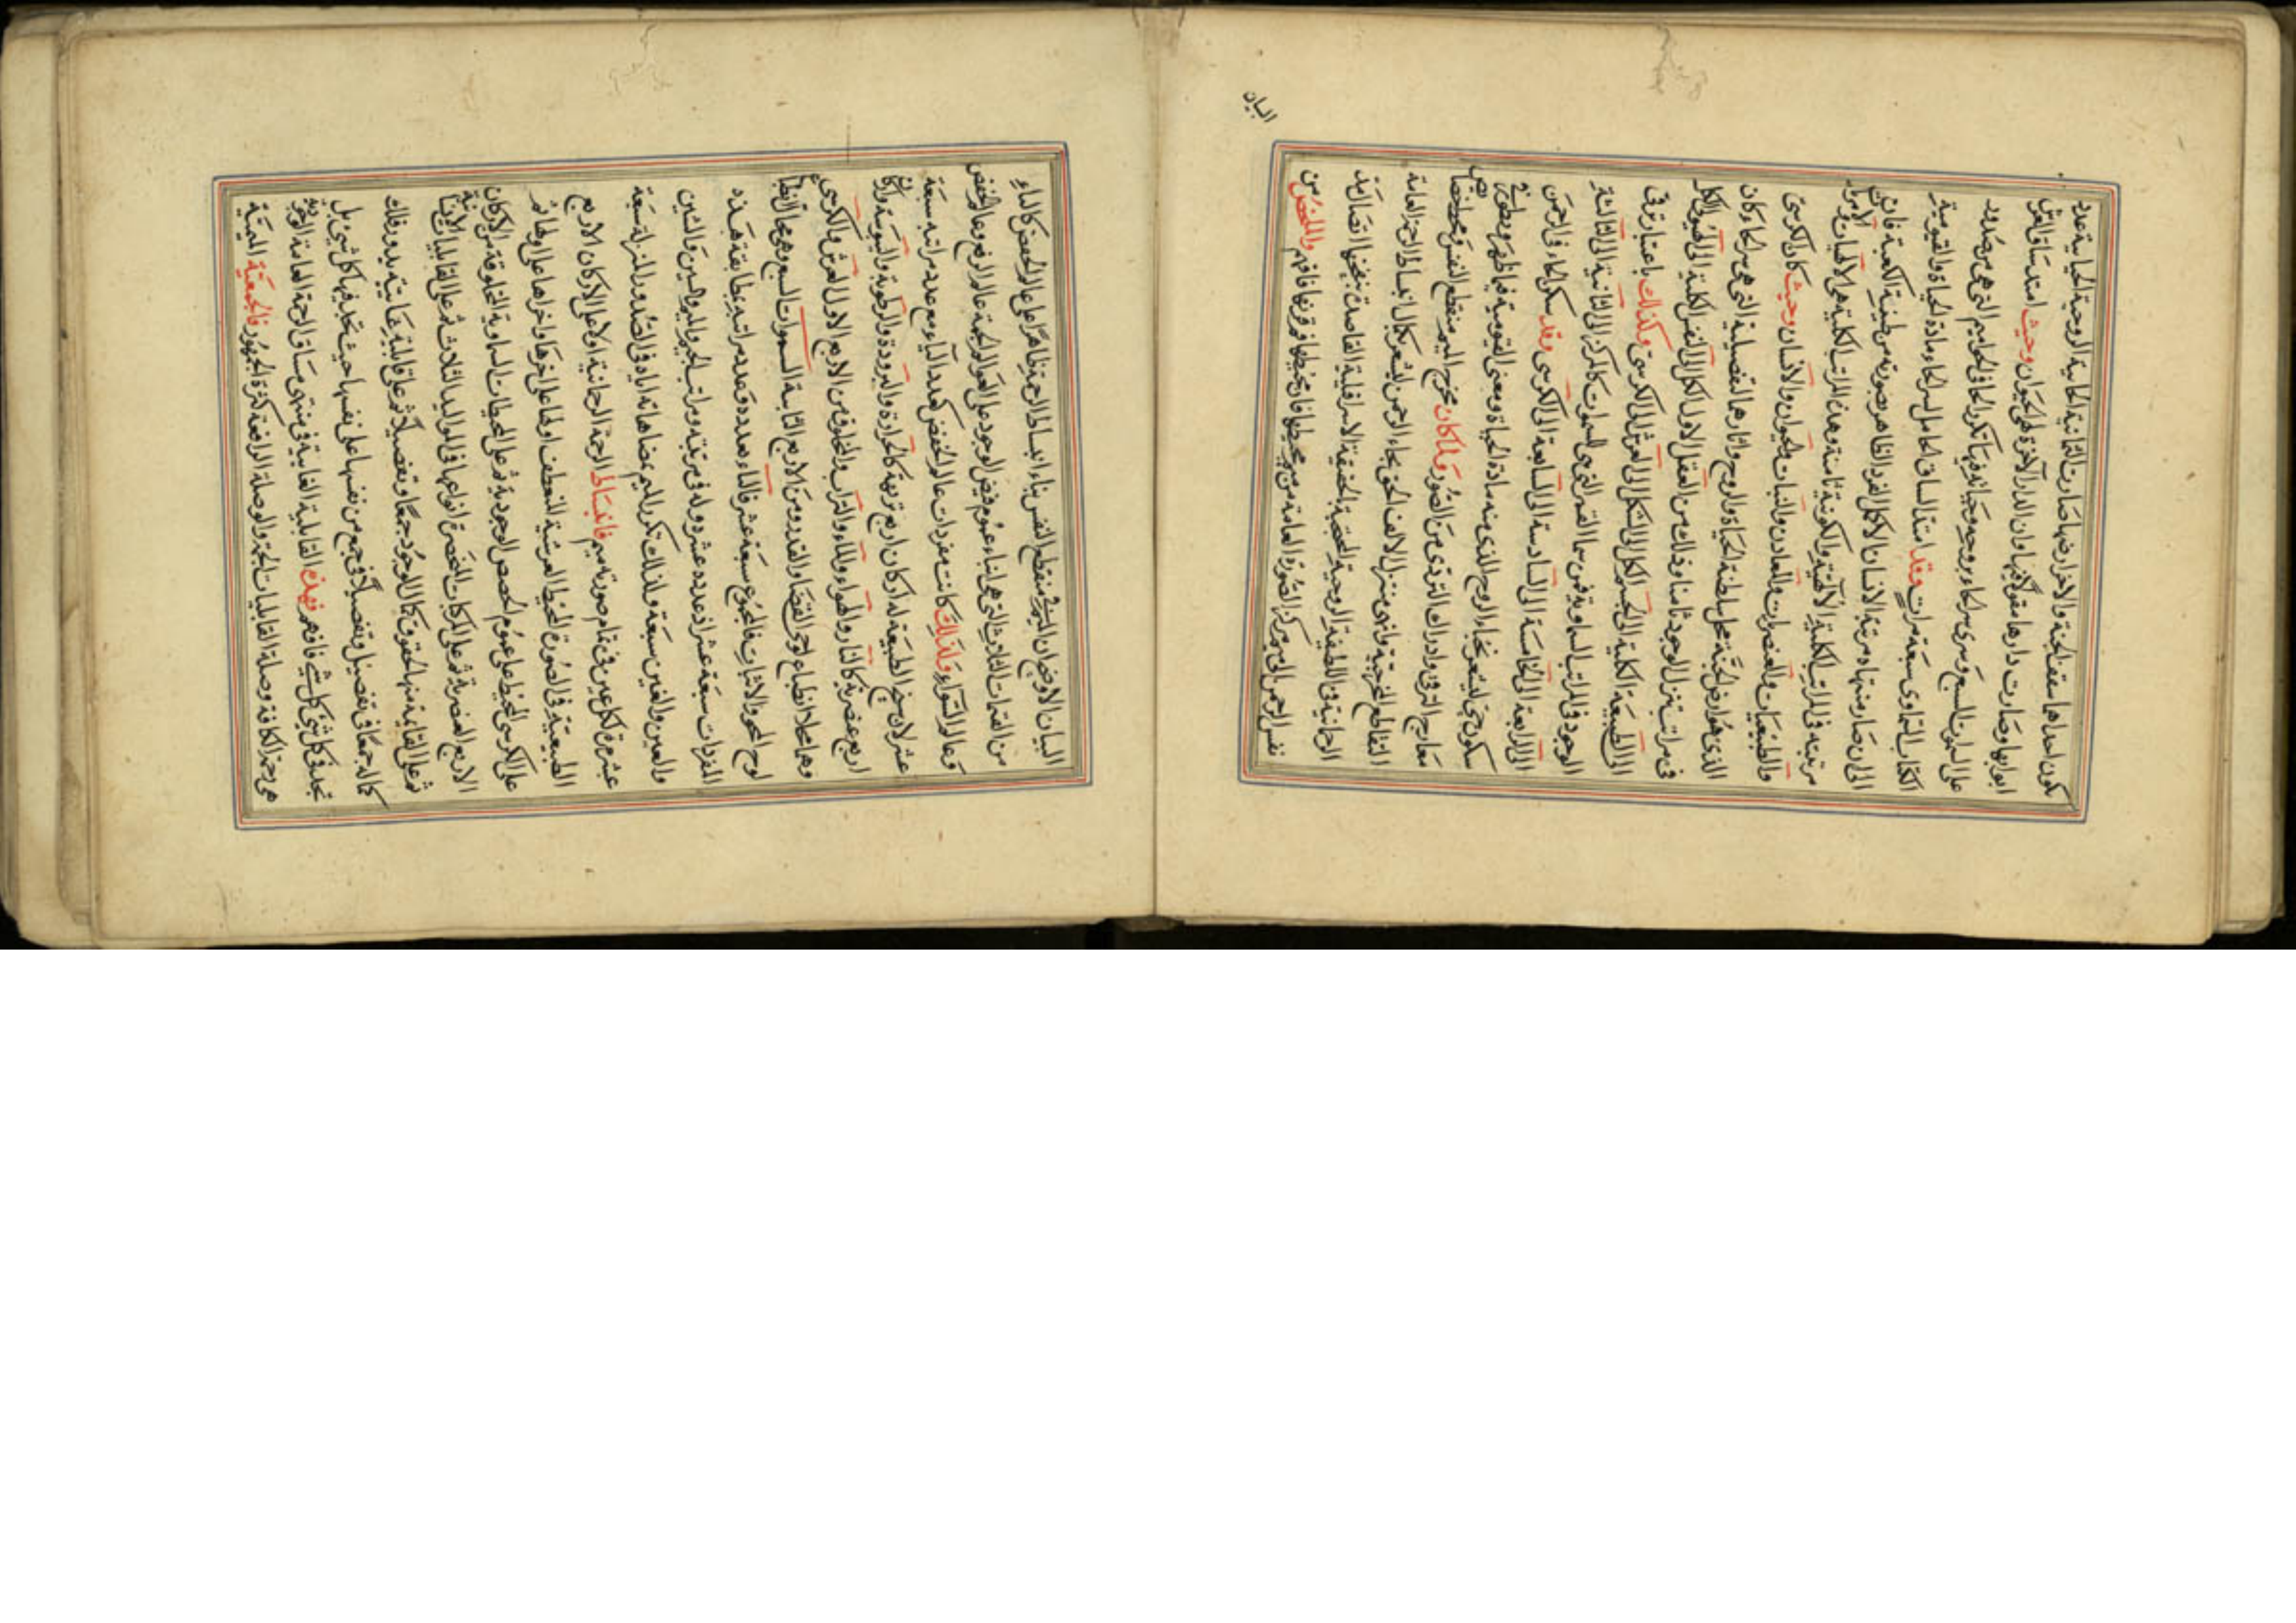 يكون احداهما سقف الجنة والاخر ارضها صارت الثمانية الحائية الروحية الحياتية عدد
ابوابها وصارت دارها مقولا فيها وان الدار الآخرة لهي الحيوان وحيث امتد ساق العرش
على السموات السبع وسرى سر الحاء بروحه وحياته فيها تكرر الحاء فى الحواميم التى هى سر صدور
الكتاب السماوى سبعة مرات وقد امتد الساق الحامل لسر الحاء ومادة الحياة والقيومية
الى ان صار منتهاه مرتبة الانسان الاكمل الفرد الظاهر بصورته من طينة الكعبة فان
مرتبته فى المراتب الكلية الالهية والكونية ثامنة وهذه المراتب الكلية هى الالهيات والامريات
والطبيعيات والعنصريات والمعادن والنبات والحيوان والانسان وحيث كان الكرسى
الذى هو ارض الجنة محل سلطنة الحياة والروح واثارهما التفصيلية التى هى سر الحاء وكان
فى مراتب تنزل الوجود ثامنا وذلك من العقل الاول الكل الى النفس الكلية الى الهيولى الكل
الى الطبيعة الكلية الى الجسم الكل الى الشكل الى العرش الى الكرسى وكذلك باعتبار ترقى
الوجود فى المراتب السماوية فمن سما القمر التى هى السموات كالمركز الى الثانية الى الثالثة
الى الرابعة الى الخامسة الى السادسة الى السابعة الى الكرسى وقد سكن الحاء فى الرحمن
سكون حى ليشعر بخفاء الروح الذى منه مادة الحياة ومعنى القيومية فيما ظهر وبطونه فى
معارج الترقى وادراك التردى من الصور ولما كان مخرج الميم منقطع النفس
التقاطع وانهى متنزل الالف الحق بحاء الرحمن ليشعر بكمال انبساط الرحمة العامة
الرحمانية فى اللطيفة الروحية المختصة بالحقيقة الاسرافيلية القاصدة بنفخها اتصال مد
نفس الرحمن الى سر مركز الصورة العامة من سر محيطها فان محيطها فافهم والملخص من
البيان
البيان الاوضح ان الميم منقطع النفس بناء انبساط الرحمة ظاهرا على عالم الخفض كالباء
من القسمات الثلاث التى هى انباء عموم فيض الوجود على العوالم الجمة عالم الرفع وعالم الخفض
وعالم السواء ولذلك كانت مفردات عالم الخفض كعدد الباء مع عدد مراتبه سبعة
عشر لان سنخ الطبيعة له اركان اربع تربيعه كالحرارة والبرودة والرطوبة واليبوسة واركان
اربع عنصرية كالنار والهواء والماء والتراب والمخلوق من الاربع الاول العرش والكرسى
وهما محلا انطباع لوحى القضاء والقدر ومن الاربع الثانية السموات السبع وهى محال انطباع
لوح المحو والاثبات فالمجموع سبعة عشر فالباء بعدده فعدد مراتبه مطابقة هذه
المفردات سبعة عشر اذ عدده عشر وله فى مرتبته ومراتب الجيم والميم والسين والشين
والعين والغين سبعة ولذلك تكرر للميم مضاهاته اياه فى الصدور المنزلة سبعة
عشر مرة لكل عين فى مقام صورته ميم فانبساط الرحمة الرحمانية اولا على الاركان الاربع
الطبيعية فى الصورة المحيط العرشية المنعطف اولها على اخرها واخرها على اولها ثم
على الكرسى المحيط على عموم الحصص الوجودية ثم على المحيطات السماوية المخلوقة من الاركان
الاربع العنصرية ثم على المركبات المنحصرة انواعها فى المواليد الثلاث ثم على القابليات الانسانية
ثم على القائمة منها لحقوق كمال الوجود جمعا وتفصيلا ثم على قابلية غائية يدور فلك
كماله جمعا فى تفصيل وتفصيلا فى جمع من نفسها على نفسها حيث تجد فيها كل شىء بل
تجد فى كل شىء كل شىء فافهم فهذه القابلية الغائية فى منتهى مساق الرحمة العامة الوجودية
هى رحمة الكافة وصلة القابليات الجمة والوصلة الرافعة كثرة الجمهور فالجمعية الميمية